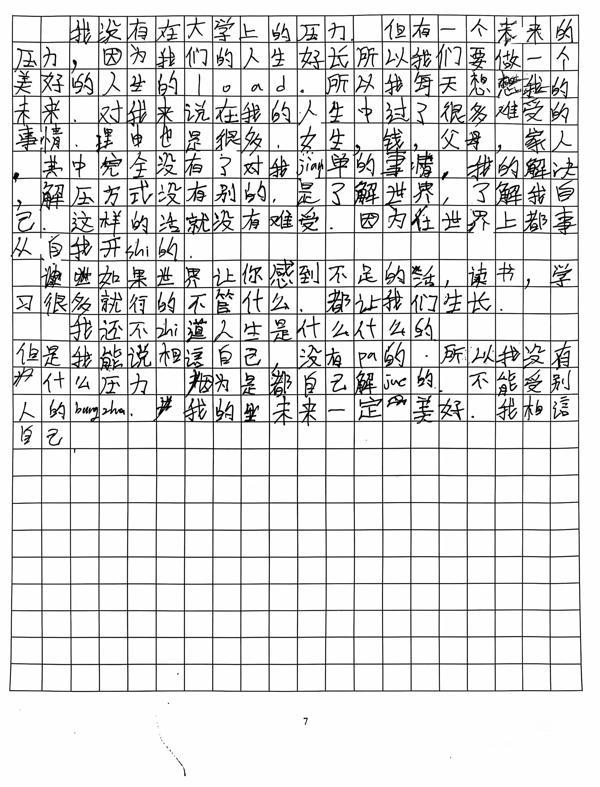 我没有在大学上的压力. 但有一个未来的
压力, 因为我们的人生好长所以我们要做一个
美好的人生的load. 所以我每天想想我的
未来. 对我来说在我的人生中过了很多难受的
事情. 理由也是很多. 女生, 钱, 父母, 家人
, 其中完全没有了对我jian单的事情, 我的解决
, 解压方式没有别的. 是了解世界, 了解我自
己. 这样的活就没有难受. 因为在世界上都事
从自我开shi的.
如果世界让你感到不足的话, 读书, 学
习很多就行的不管什么. 都让我们生长.
我还不zhi道人生是什么什么的
但是我能说相信自己, 没有pa的. 所以我没有
什么压力 因为是都自己解jue的. 不能受别
人的bangzhu. 我的未来一定美好. 我相信
自己
7